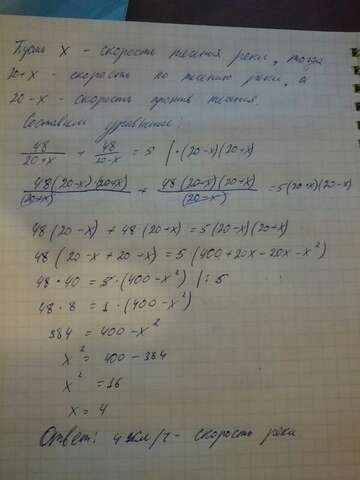 Пусть х - скорость течения реки, тогда
20+х - скорость по течению реки, а
20-х - скорость против течения.
Составим уравнение:
48/(20+х) + 48/(20-х) = 5 | ·(20-х)(20+х)
48(20-х)(20+х)/(20+х) + 48(20-х)(20+х)/(20-х) = 5(20+х)(20-х)
48(20-х) + 48(20+х) = 5(20-х)(20+х)
48(20-х+20+х) = 5(400+20х-20х-х²)
48·40 = 5·(400-х²) |:5
48·8 = 1·(400-х²)
384 = 400-х²
х² = 400-384
х² = 16
х = 4
Ответ: 4 км/ч - скорость реки